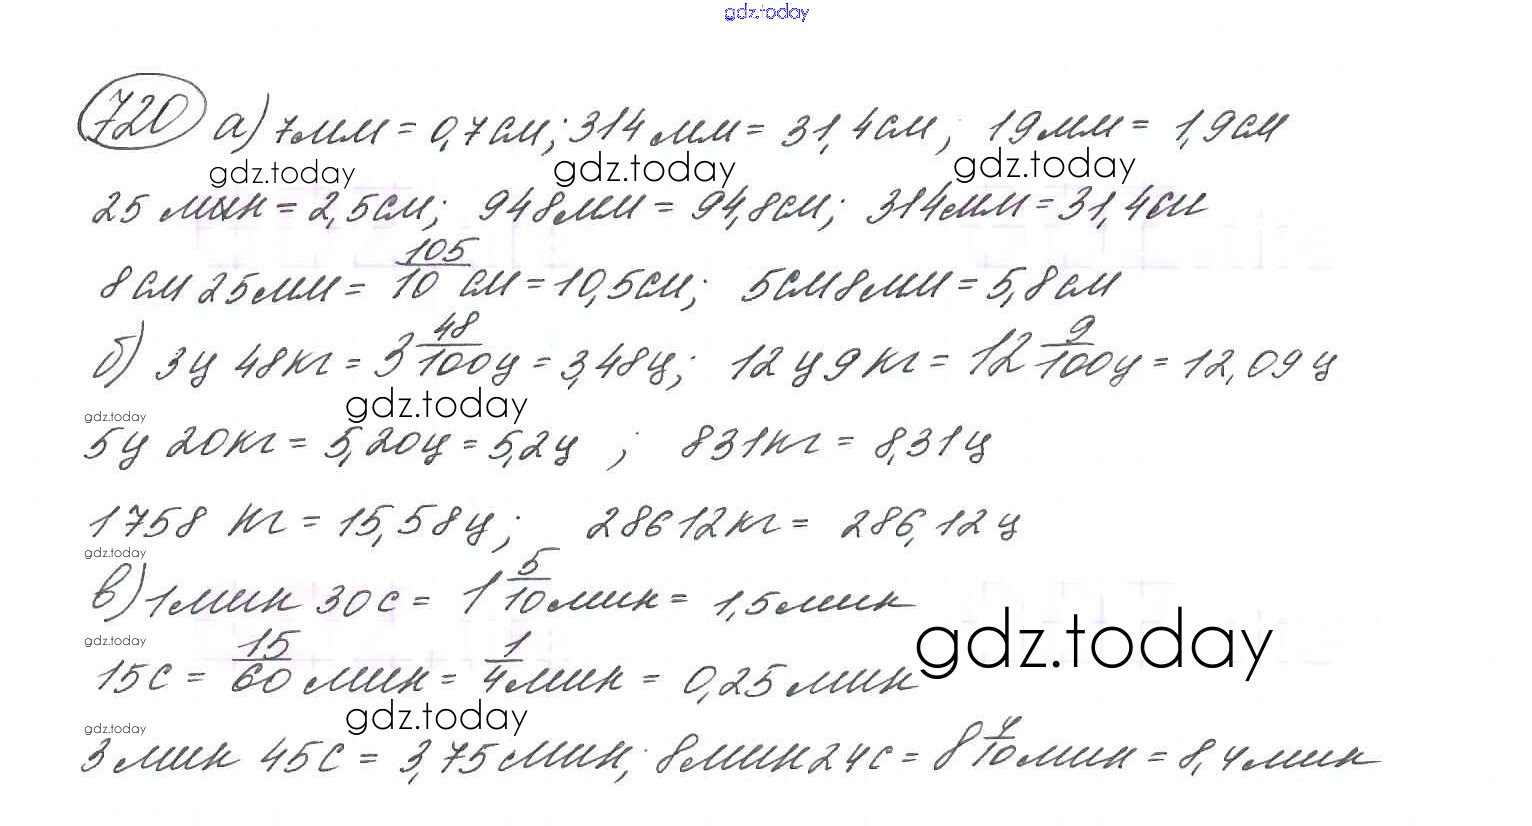 gdz.today
720 а) 7мм = 0,7см; 314 мм = 31,4см; 19мм = 1,9см
gdz.today gdz.today gdz.today
25 мин = 2,5см; 948мм = 94,8см; 314мм = 31,4см
8см 25мм = 105/10 см = 10,5см; 5см 8мм = 5,8см
б) 3ц 48кг = 3 48/100ц = 3,48ц; 12ц 9кг = 12 9/100ц = 12,09ц
gdz.today gdz.today
5ц 20кг = 5,20ц = 5,2ц ; 831кг = 8,31ц
1758 кг = 15,58ц; 28612кг = 286,12ц
gdz.today
в) 1мин 30с = 1 5/10мин = 1,5мин
gdz.today gdz.today
15с = 15/60 мин = 1/4мин = 0,25мин
gdz.today gdz.today
3мин 45с = 3,75мин; 8мин 24с = 8 4/10мин = 8,4мин